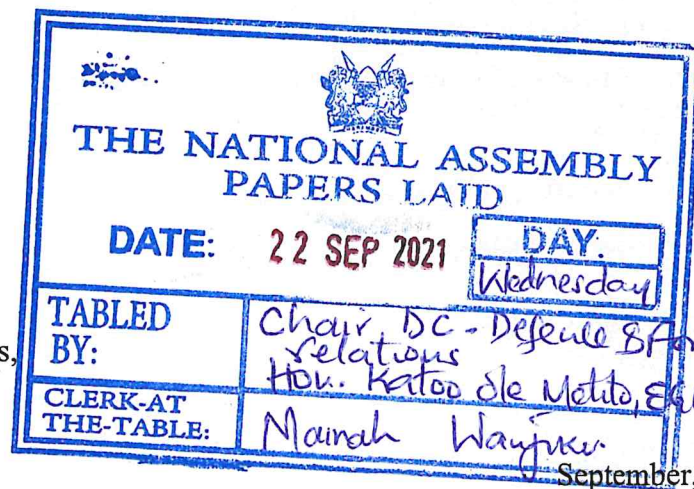 THE NATIONAL ASSEMBLY
PAPERS LAID
DATE: 22 SEP 2021
DAY:
Wednesday
TABLED BY:
Chair, DC - Defence &
relations
Hon. Katoo Ole Metito,
s,
CLERK-AT THE-TABLE:
Mainah Wanjiku
September,